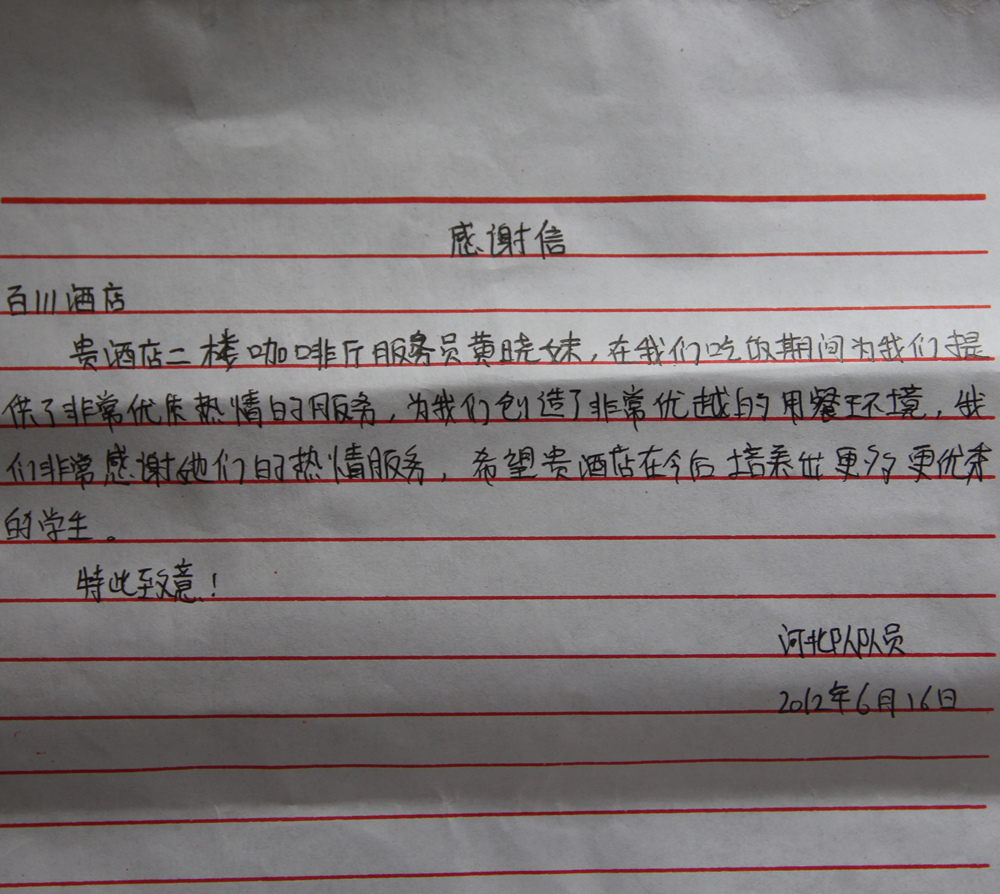 感谢信
百川酒店
贵酒店二楼咖啡厅服务员黄晓妹,在我们吃饭期间为我们提
供了非常优质热情的服务,为我们创造了非常优越的用餐环境,我
们非常感谢她们的热情服务,希望贵酒店在今后培养出更多更优秀
的学生。
特此致意!
河北队队员
2012年6月16日